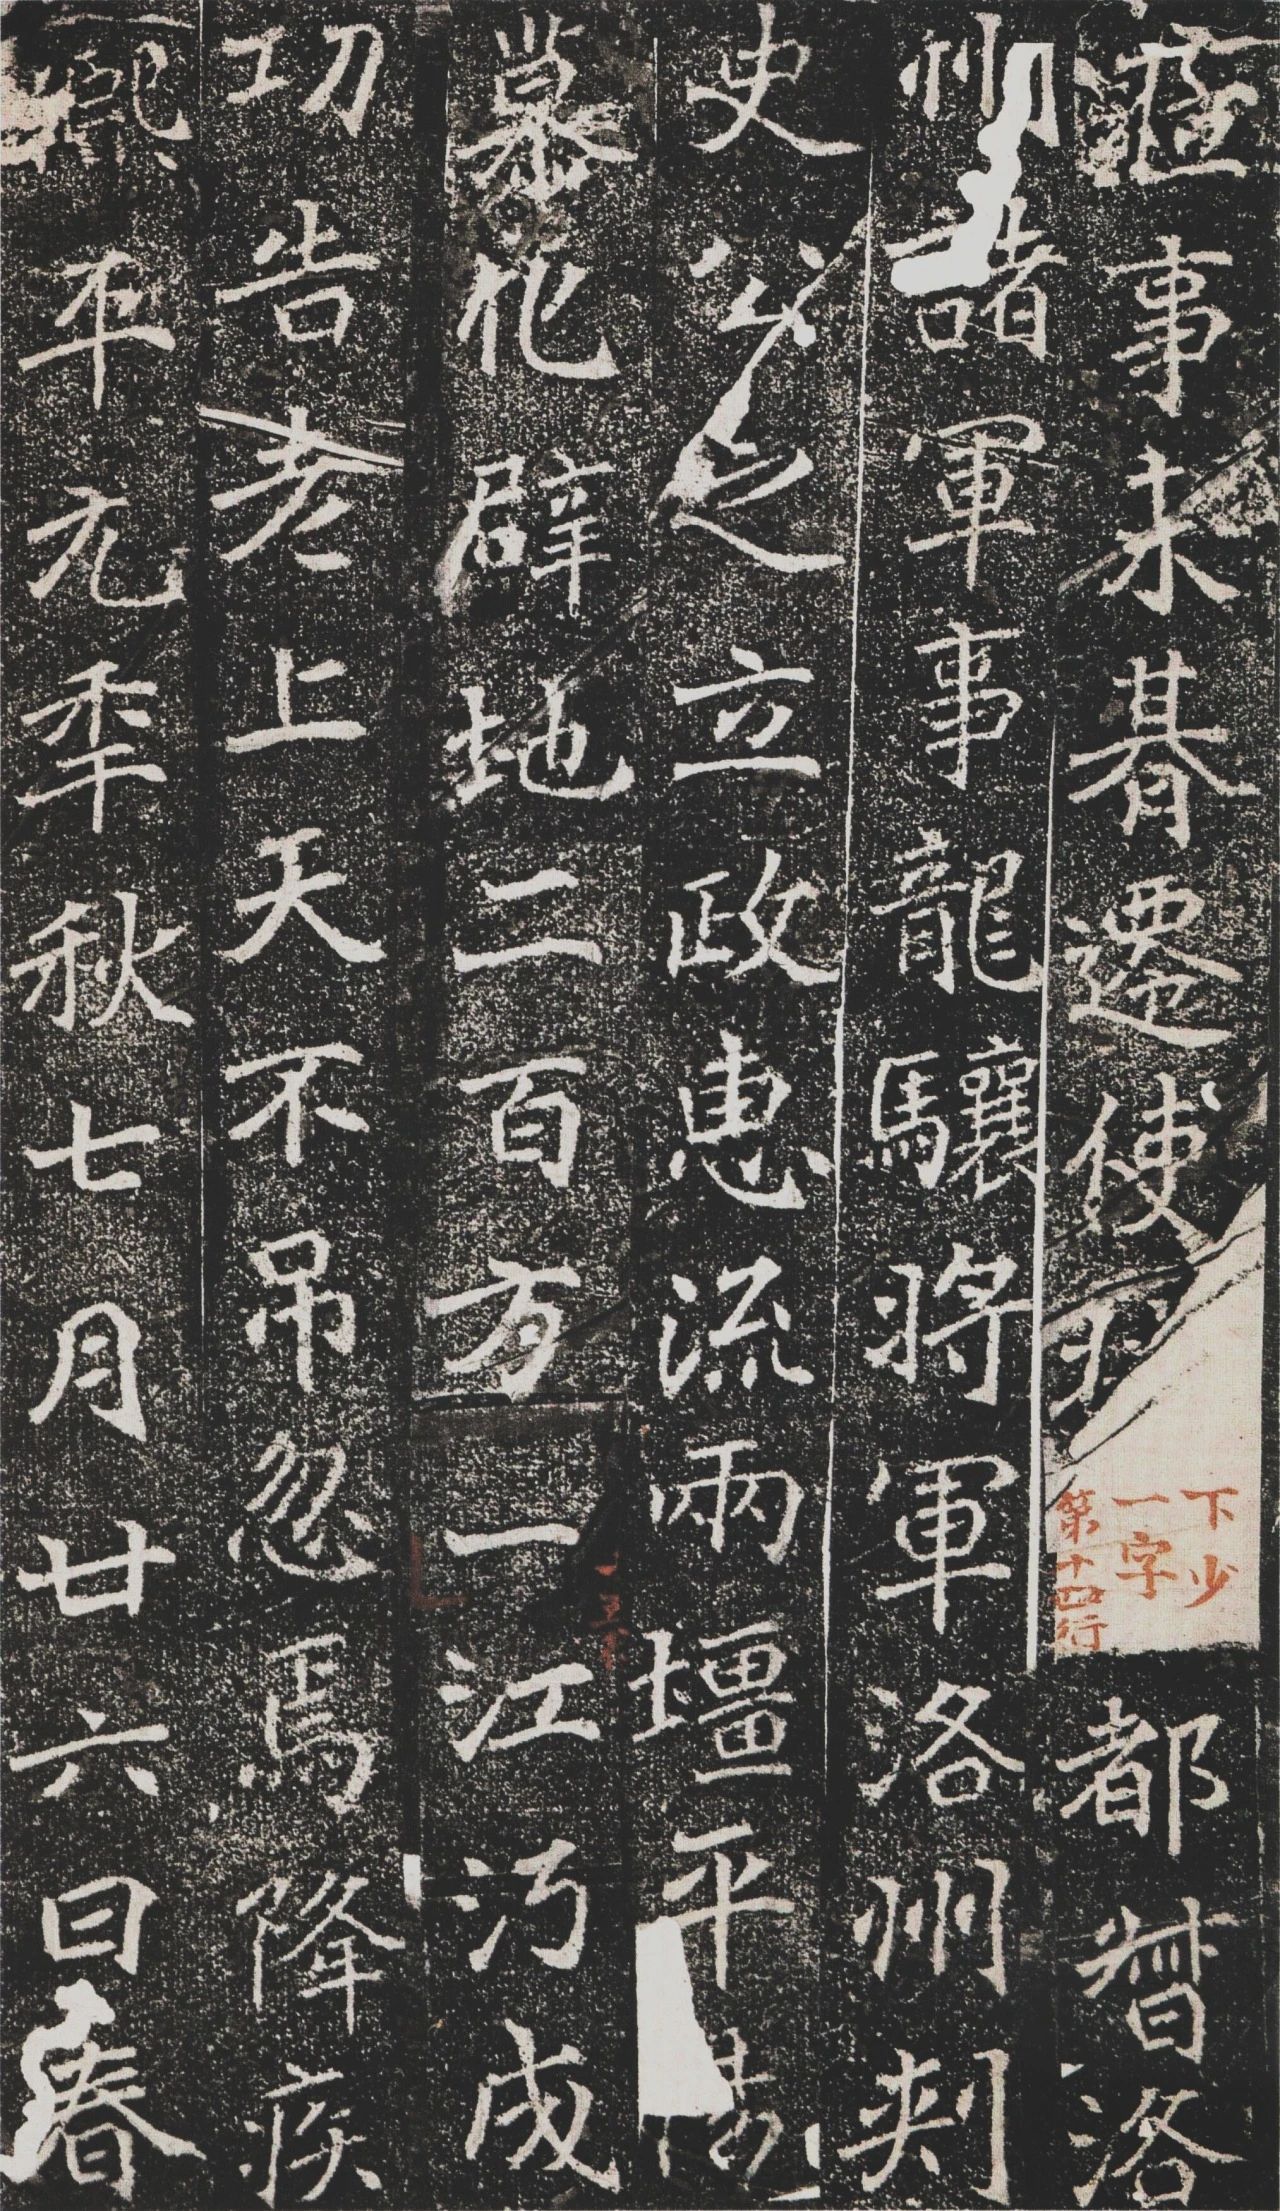 事未朞遷使持都督洛
下少
一字
第十四行
州諸軍事龍驤將軍洛州刺
史公之立政惠流兩壃平陽
慕化辟地二百方一江沔成
功告老上天不弔忽焉降疾
熙平元年秋七月廿六日春